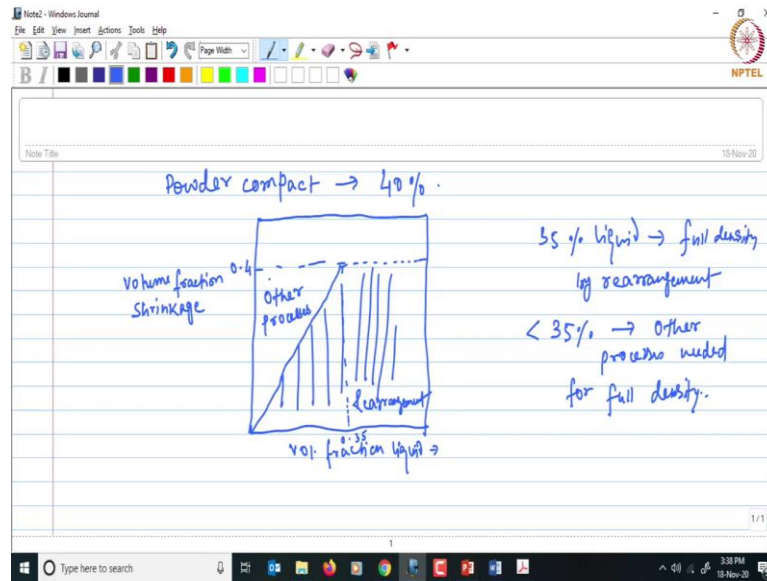 Note2 - Windows Journal
File Edit View Insert Actions Tools Help
Page Width
B I
NPTEL
Note Title
18-Nov-20
Powder compact → 40%.
volume fraction
shrinkage
0.4
Other
process
Rearrangement
0.35
vol. fraction liquid →
35% liquid → full density
by rearrangement
< 35% → other
process needed
for full density.
1/1
1
Type here to search
3:38 PM
18-Nov-20